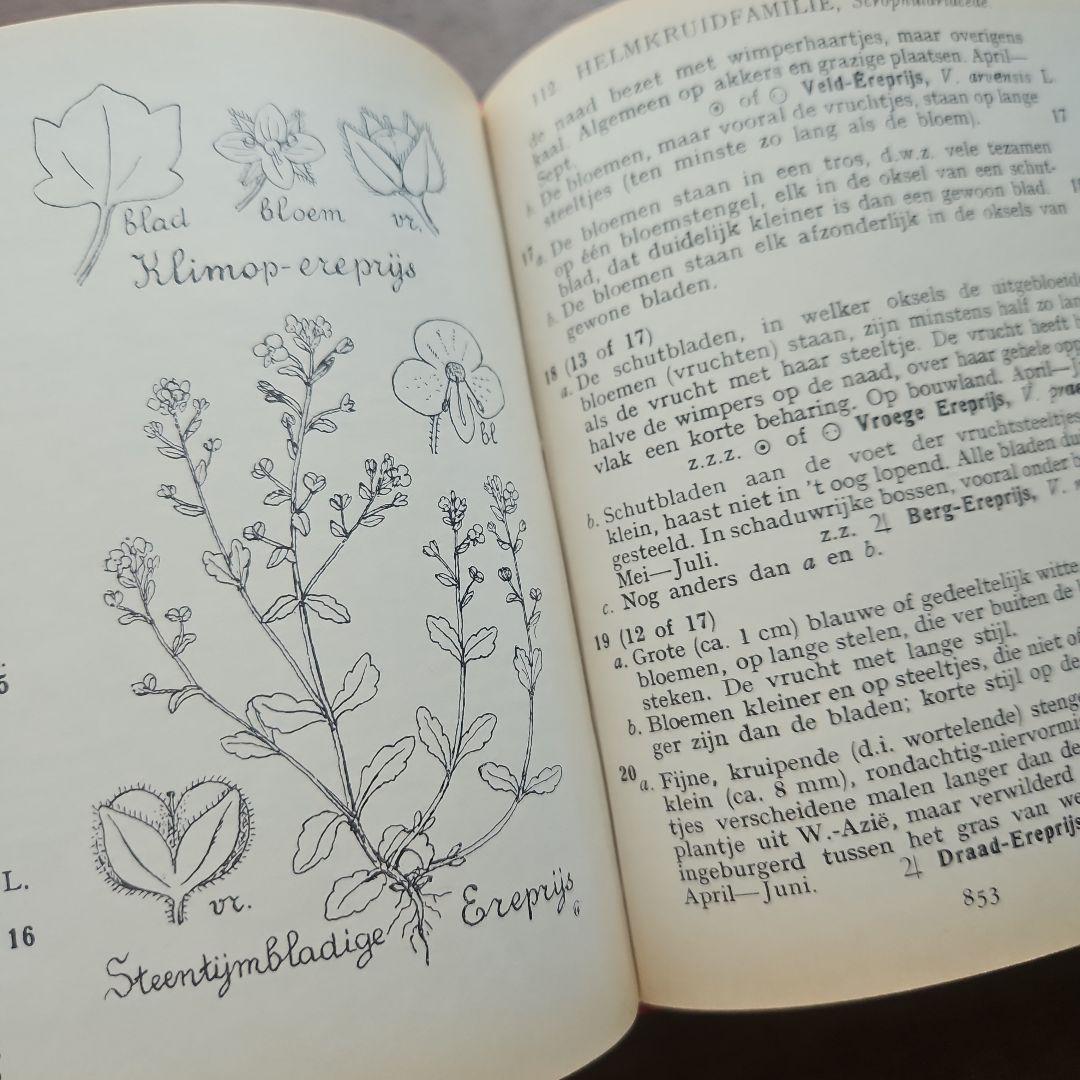 blad
bloem
vr.
Klimop-ereprijs
bl
vr.
Steentijmbladige Ereprijs
5
L.
16
112. HELMKRUIDFAMILIE, Scrophulariaceae.
de naad bezet met wimperhaartjes, maar overigens
kaal. Algemeen op akkers en grazige plaatsen. April—
Sept. ☉ of Veld-Ereprijs, V. arvensis L.
b. De bloemen, maar vooral de vruchtjes, staan op lange
steeltjes (ten minste zo lang als de bloem). 17
17 a. De bloemen staan in een tros, d.w.z. vele tezamen
op één bloemstengel, elk in de oksel van een schut-
blad, dat duidelijk kleiner is dan een gewoon blad.
b. De bloemen staan elk afzonderlijk in de oksels van
gewone bladen.
18 (13 of 17)
a. De schutbladen, in welker oksels de uitgebloeide
bloemen (vruchten) staan, zijn minstens half zo
als de vrucht met haar steeltje. De vrucht heeft
halve de wimpers op de naad, over haar gehele
vlak een korte beharing. Op bouwland. April—
z.z.z. ☉ of Vroege Ereprijs, V.
b. Schutbladen aan de voet der vruchtsteeltjes
klein, haast niet in 't oog lopend. Alle bladen
gesteeld. In schaduwrijke bossen, vooral onder
Mei—Juli. z.z. ♃ Berg-Ereprijs, V.
c. Nog anders dan a en b.
19 (12 of 17)
a. Grote (ca. 1 cm) blauwe of gedeeltelijk witte
bloemen, op lange stelen, die ver buiten de
steken. De vrucht met lange stijl.
b. Bloemen kleiner en op steeltjes, die niet of
ger zijn dan de bladen; korte stijl op de
20 a. Fijne, kruipende (d.i. wortelende)
klein (ca. 8 mm), rondachtig-niervormig
tjes verscheidene malen langer dan de
plantje uit W.-Azië, maar verwilderd
ingeburgerd tussen het gras van
April—Juni. ♃ Draad-Ereprijs
853